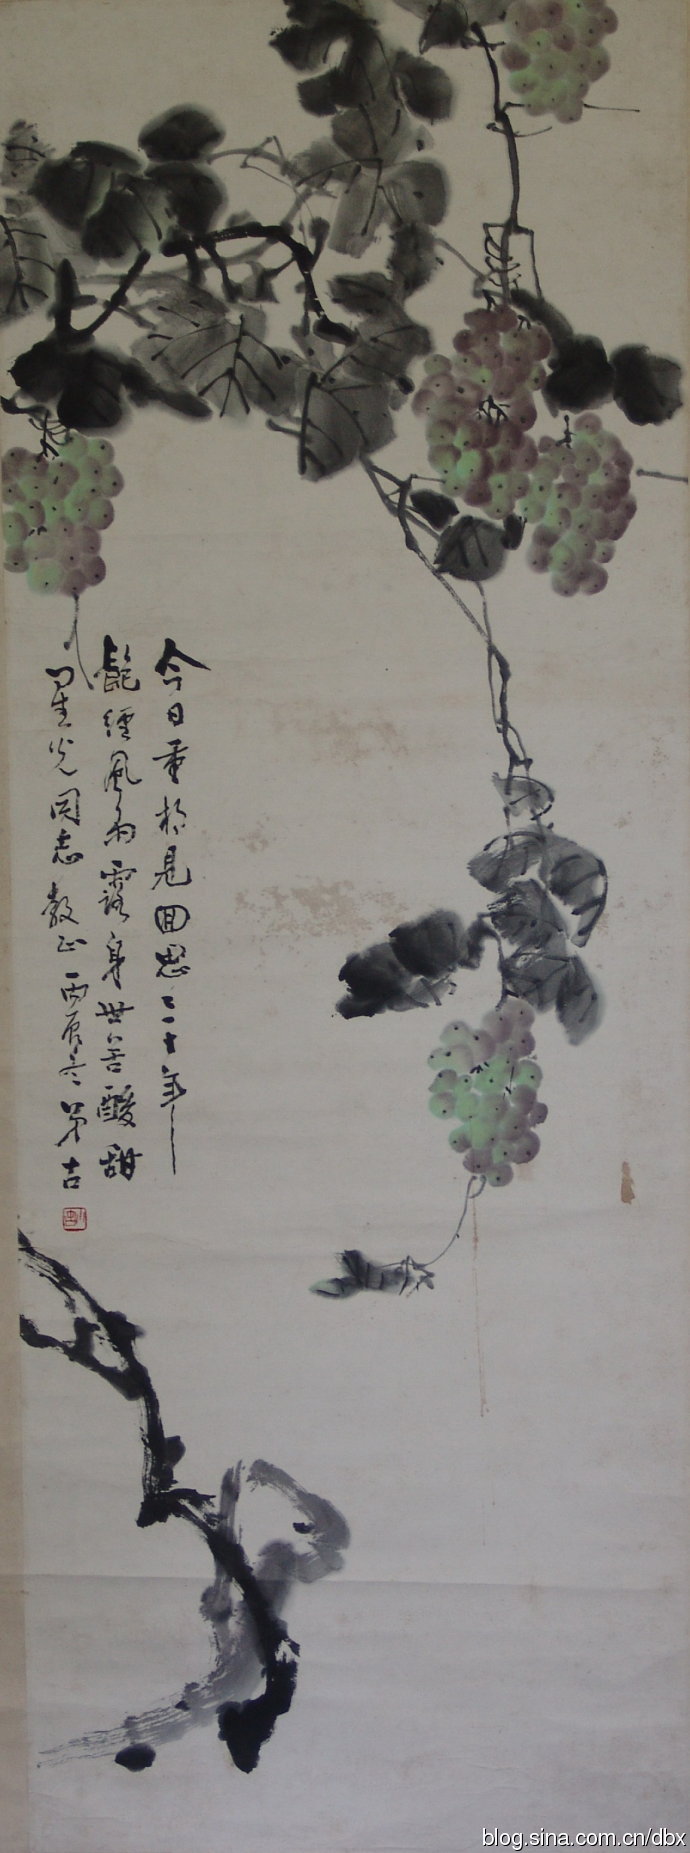 今日重相見回思二十年
飽經風雨露身世苦酸甜
星光同志教正丙辰冬弟古
blog.sina.com.cn/dbx